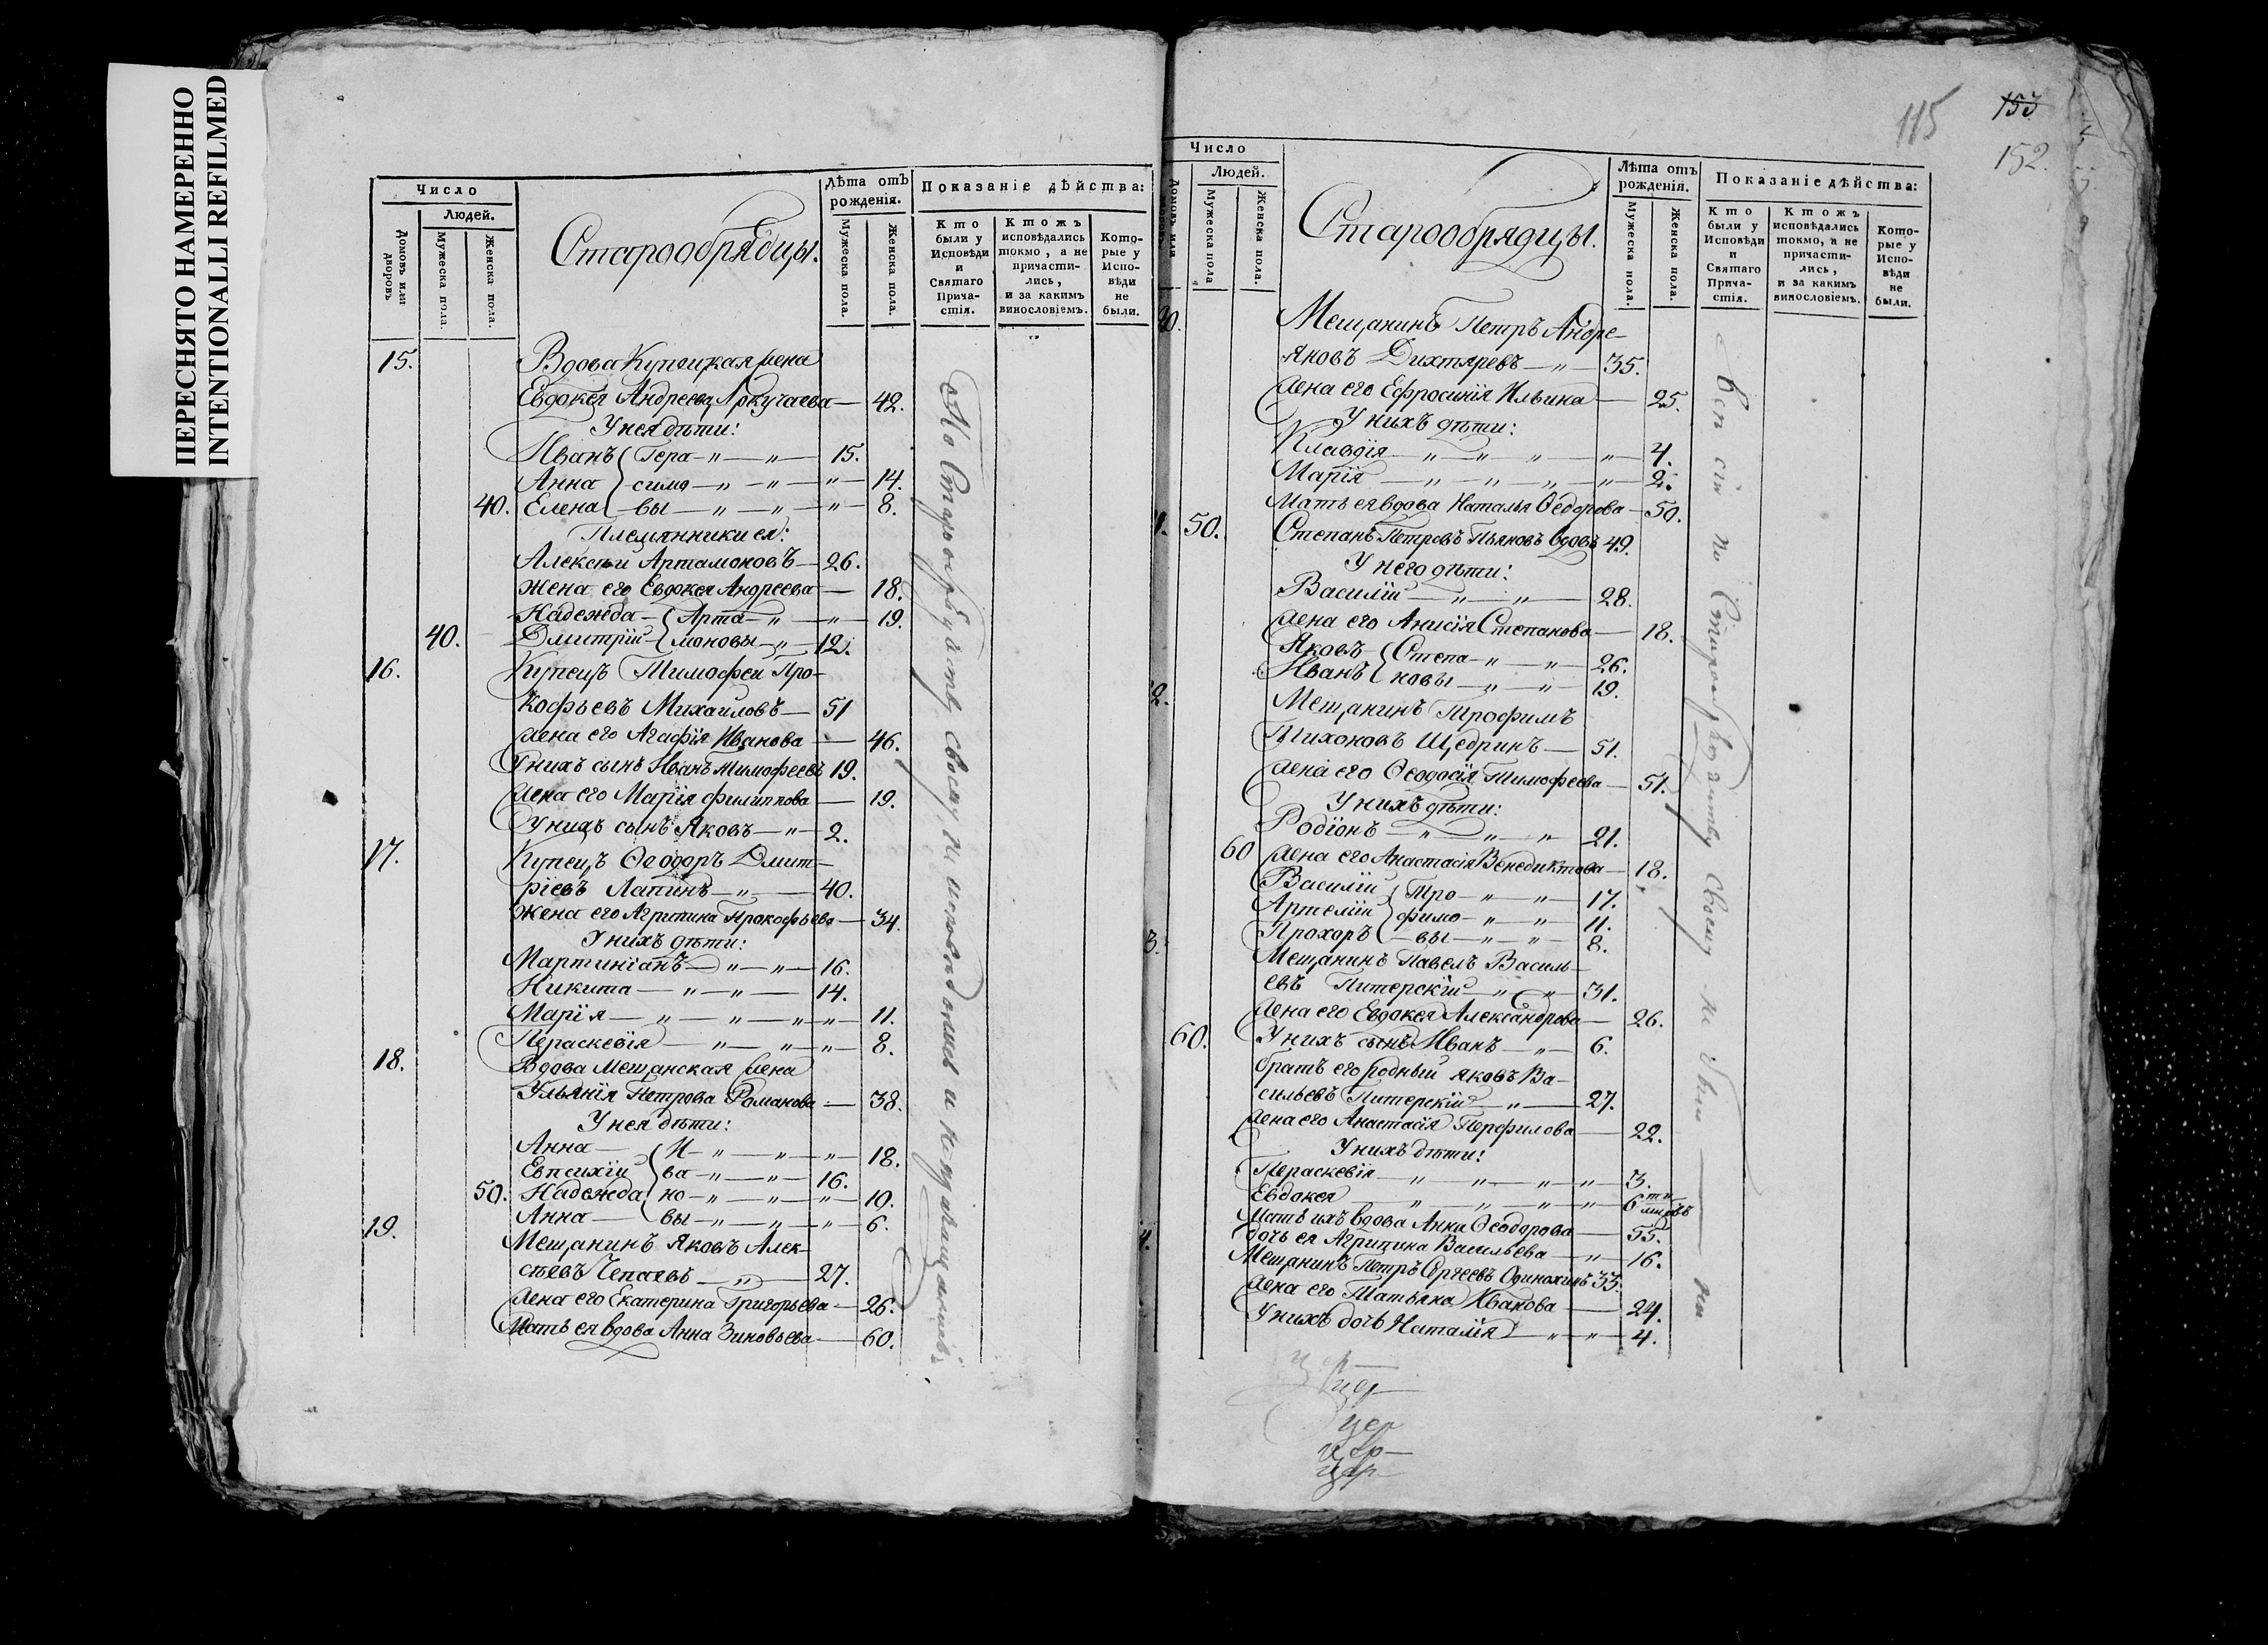 ПЕРЕСНЯТО НАМЕРЕННО
INTENTIONALLI REFILMED
Число
Людей.
Домовъ или дворовъ
Мужеска пола.
Женска пола.
Старообрядцы.
Лѣта отъ рожденія.
Мужеска пола.
Женска пола.
Показаніе дѣйства:
Кто были у Исповѣди и Святаго Причастія.
Ктожъ исповѣдались токмо, а не причастились, и за какимъ винословіемъ.
Которые у Исповѣди не были.
15. Вдова Купецкая жена
Евдокея Андреева — 42.
У нея дѣти:
Иванъ Гера-„—„— 15.
Анна симо—„—„—„— 14.
40. Елена —вы—„—„—„— 8.
Племянники ея:
Алексѣй Артамоновъ— 26.
Жена его Евдокея Андреева— 18.
Надежда— Арта-„—„— 19.
40. Дмитрій— моновы—„— 12.
16. Купецъ Тимофей Про-
кофьевъ Михаиловъ— 51
жена его Агафія Иванова— 46.
У нихъ сынъ Иванъ Тимофеевъ 19.
жена его Марія Филиппова— 19.
У нихъ сынъ Яковъ—„— 2.
17. Купецъ Ѳеодоръ Дмит-
ріевъ Лапинъ—„— 40.
Жена его Агрипина Прокофьева— 34.
У нихъ дѣти:
Мартиніанъ—„—„— 16.
Никита—„—„— 14.
Марія—„—„—„—„— 11.
Параскевія—„—„—„— 8.
18. Вдова Мещанская жена
Ульянія Петрова Романова— 38.
У нея дѣти:
Анна— И-„—„—„— 18.
Евпсихій ва-„—„— 16.
50. Надежда но-„—„—„— 10.
Анна— вы-„—„—„— 6.
19. Мещанинъ Яковъ Алек-
сѣевъ Чепаевъ—„— 27.
жена его Екатерина Григорьева— 26.
Мать ея вдова Анна Зиновьева— 60.
По Старообрядству своему не исповѣдались и не пріобщались.
115
153
152.
Число
Людей.
Домовъ или
Мужеска пола
Женска пола.
Старообрядцы.
Лѣта отъ рожденія.
Мужеска пола.
Женска пола.
Показаніе дѣйства:
Кто были у Исповѣди и Святаго Причастія.
Ктожъ исповѣдались токмо, а не причастились, и за какимъ винословіемъ.
Которые у Исповѣди не были.
20. Мещанинъ Петръ Андре-
яновъ Дихтяревъ—„— 35.
жена его Ефросинія Ильина— 25.
У нихъ дѣти:
Клавдія—„—„—„—„— 4.
Марія—„—„—„—„— 2.
Мать ея вдова Наталья Ѳедорова— 50.
1. 50. Степанъ Петровъ Пьяновъ вдовъ 49.
У него дѣти:
Василій—„—„— 28.
жена его Анисія Степанова— 18.
Яковъ Степа-„—„— 26.
Иванъ новы—„—„— 19.
2. Мещанинъ Трофимъ
Тихоновъ Щедринъ— 51.
жена его Ѳеодосія Тимофеева— 51.
У нихъ дѣти:
Родіонъ—„—„—„— 21.
60 жена его Анастасія Венедиктова— 18.
Василій Тро-„—„— 17.
Артемій фимо-„—„— 11.
Прохоръ —вы—„—„— 8.
3. Мещанинъ Павелъ Василь-
евъ Питерскій—„—„— 31.
жена его Евдокея Александрова— 26.
60. У нихъ сынъ Иванъ—„— 6.
братъ его родный Яковъ Ва-
сильевъ Питерскій—„— 27.
жена его Анастасія Перфилова— 22.
У нихъ дѣти:
Параскевія—„—„—„—„— 3.
Евдокея—„—„—„—„— 6
Мать ихъ вдова Анна Ѳеодорова— 55.
дочь ея Агрипина Васильева—„— 16.
4. Мещанинъ Петръ Сергеевъ 33.
жена его Татьяна Иванова— 24.
У нихъ дочь Наталія—„—„— 4.
Всѣ сіи по Старообрядству своему не были